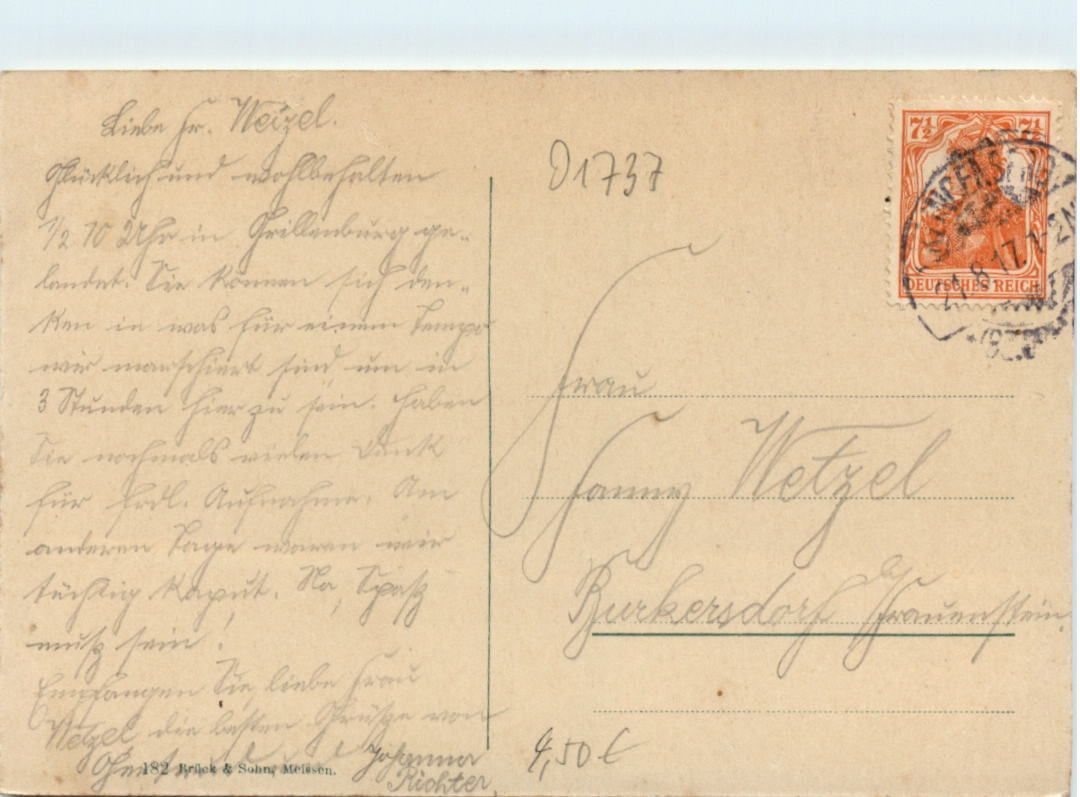 Liebe Fr. Wetzel.
Glücklich und wohlbehalten
1/2 10 Uhr in Grillenburg ge-
landet. Sie können sich den-
ken in was für einem Tempo
wir marschiert sind, um in
3 Stunden hier zu sein. Haben
Sie nochmals vielen Dank
für frdl. Aufnahme. Am
anderen Tage waren wir
tüchtig kaput. Na, Spaß
muß sein!
Empfangen Sie, liebe Frau
Wetzel die besten Grüße von
Johanna
Richter
182 Brück & Sohn, Meissen.
D1737
7½ 7½
DEUTSCHES REICH
21.8.17.
Frau
Fanny Wetzel
Burkersdorf b/ Frauenstein.
4,50 €